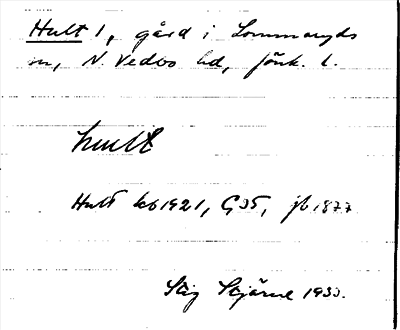 Hult 1, gård i Lommaryds
sn, N. Vedbo hd, Jönk. l.
hult
Hult kb 1921, G35, jb 1877
Stig Stjärne 1933.